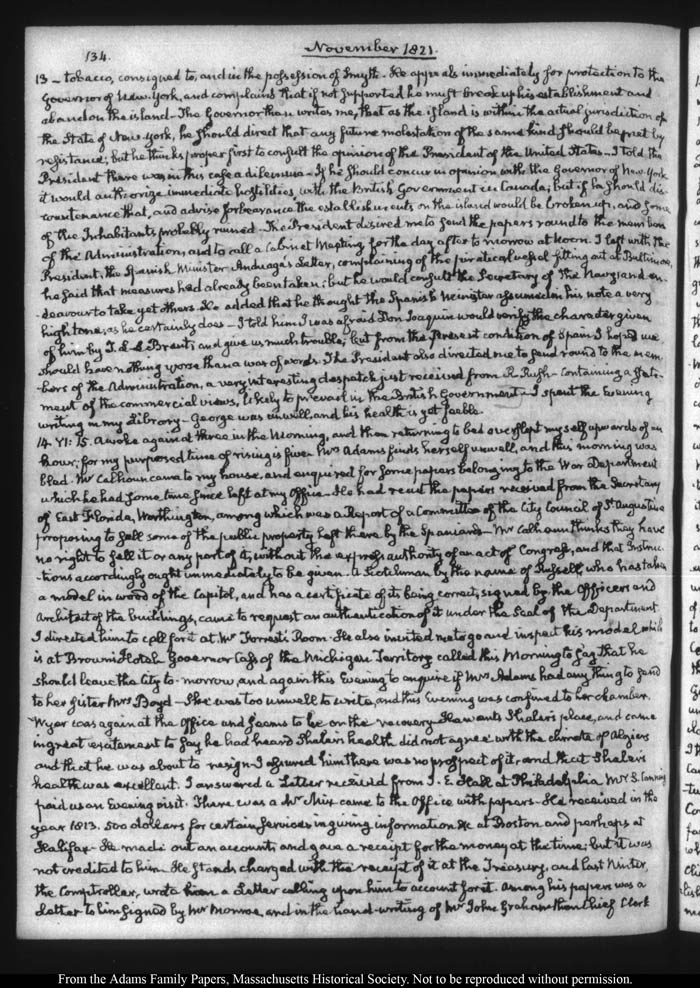 134.
November 1821.
13 — tobacco, consigned to, and in the possession of Smyth. He appeals immediately for protection to the
Governor of New York, and complains that if not supported he must break up his establishment and
abandon the island. The Governor than writes me, that as the island is within the actual jurisdiction of
the State of New York, he should direct that any future molestation of the same kind should be met by
resistance; but he thinks proper first to consult the opinion of the President of the United States. I told the
President there was in this case a dilemma. If he should concur in opinion with the Governor of New York
it would authorize immediate hostilities with the British Government in Canada; but if he should dis-
countenance that, and advise forbearance the establishments on the island would be broken up, and some
of the Inhabitants probably ruined. The President desired me to send the papers round to the members
of the Administration, and to call a Cabinet Meeting for the day after to morrow at Noon. I left with the
President, the Spanish Minister Anduaga's Letter, complaining of the piratical vessel fitting out at Baltimore,
he said that measures had already been taken; but he would consult the Secretary of the Navy and en-
deavour to take yet others. He added that he thought the Spanish Minister assumed in his note a very
high tone; as he certainly does — I told him I was afraid Don Joaquin would verify the character given
of him by T. L. L. Brent, and give us much trouble; but from the present condition of Spain I hoped we
should have nothing worse than a war of words. The President also directed me to send round to the mem-
bers of the Administration, a very interesting despatch just received from R. Rush — containing a state-
ment of the commercial views, likely to prevail in the British Government — I spent the Evening
writing in my Library — George was unwell, and his health is yet feeble.
14. VI: 15. Awoke again at three in the Morning, and then returning to bed overslept myself upwards of an
hour; for my purposed time of rising is five. Mrs Adams finds herself unwell, and this morning was
bled. Mr Calhoun came to my house, and enquired for some papers belonging to the War Department
which he had some time since left at my Office — He had read the papers received from the Secretary
of East Florida, Worthington, among which was a Report of a Committee of the City Council of St. Augustine
proposing to sell some of the public property left there by the Spaniards — Mr Calhoun thinks they have
no right to sell it or any part of it, without the express authority of an act of Congress, and that Instruc-
tions accordingly ought immediately to be given. A Scotchman by the name of Russell, who has taken
a model in wood of the Capitol, and has a certificate of its being correct, signed by the Officers and
Architect of the buildings, came to request an authentication of it under the Seal of the Department
I directed him to call for it at Mr Forrest's Room. He also invited me to go and inspect his model which
is at Brown's Hotel. Governor Cass of the Michigan Territory called this Morning to say that he
should leave the City to-morrow, and again this Evening to enquire if Mrs Adams had any thing to send
to her Sister Mrs Boyd — She was too unwell to write, and this Evening was confined to her chamber.
Wyer was again at the Office and seems to be on the recovery. He wants Shaler's place, and came
in great excitement to say he had heard Shaler's health did not agree with the climate of Algiers
and that he was about to resign. I assured him there was no prospect of it, and that Shaler's
health was excellent. I answered a Letter received from J. E. Hall at Philadelphia. Mr S. Canning
paid us an Evening visit. There was a Mr Mix came to the Office with papers — He received in the
year 1813. 500 dollars for certain services in giving information &c at Boston and perhaps at
Halifax — He made out an account, and gave a receipt for the money at the time; but it was
not credited to him. He stands charged with the receipt of it at the Treasury, and last Winter,
the Comptroller, wrote him a Letter calling upon him to account for it. Among his papers was a
Letter to him signed by Mr Monroe, and in the hand-writing of Mr John Graham then Chief Clerk
From the Adams Family Papers, Massachusetts Historical Society. Not to be reproduced without permission.